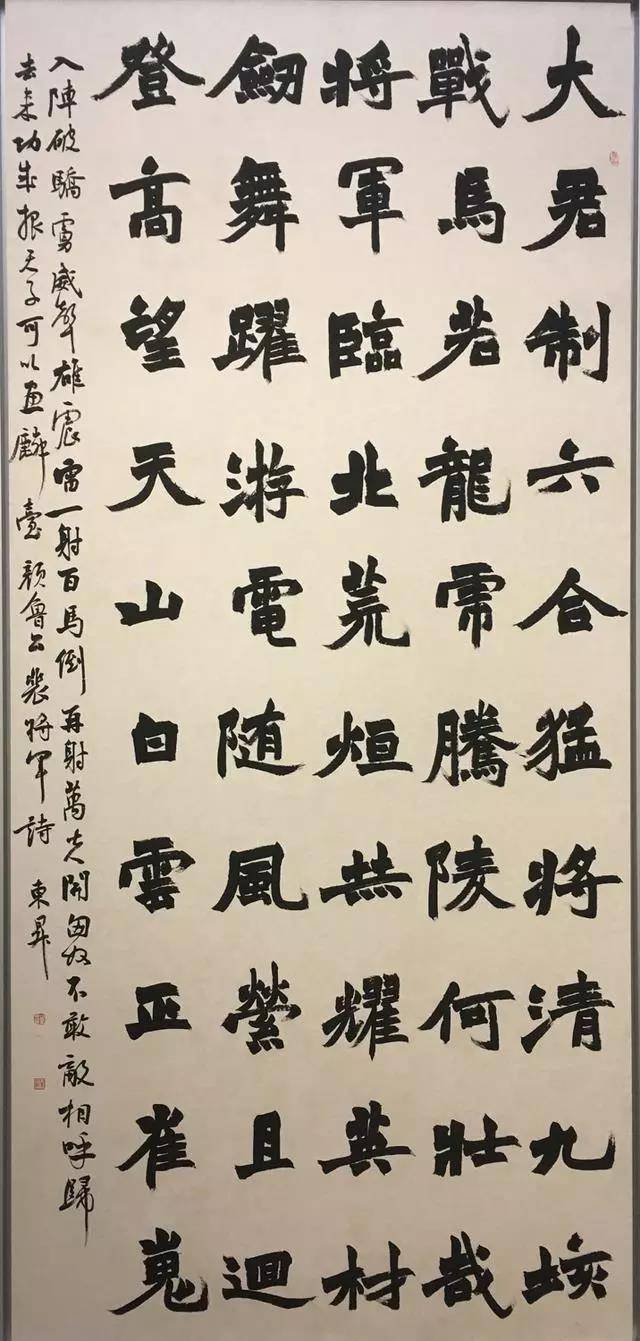 大君制六合猛將清九垓
戰馬若龍虎騰陵何壯哉
將軍臨北荒烜赫耀英材
劒舞躍游電随風縈且迴
登高望天山白雲正崔嵬
入陣破驕虜威聲雄震雷一射百馬倒再射萬夫開匈奴不敢敵相呼歸
去来功成報天子可以畫麟臺 顔魯公裴將軍詩 東昇